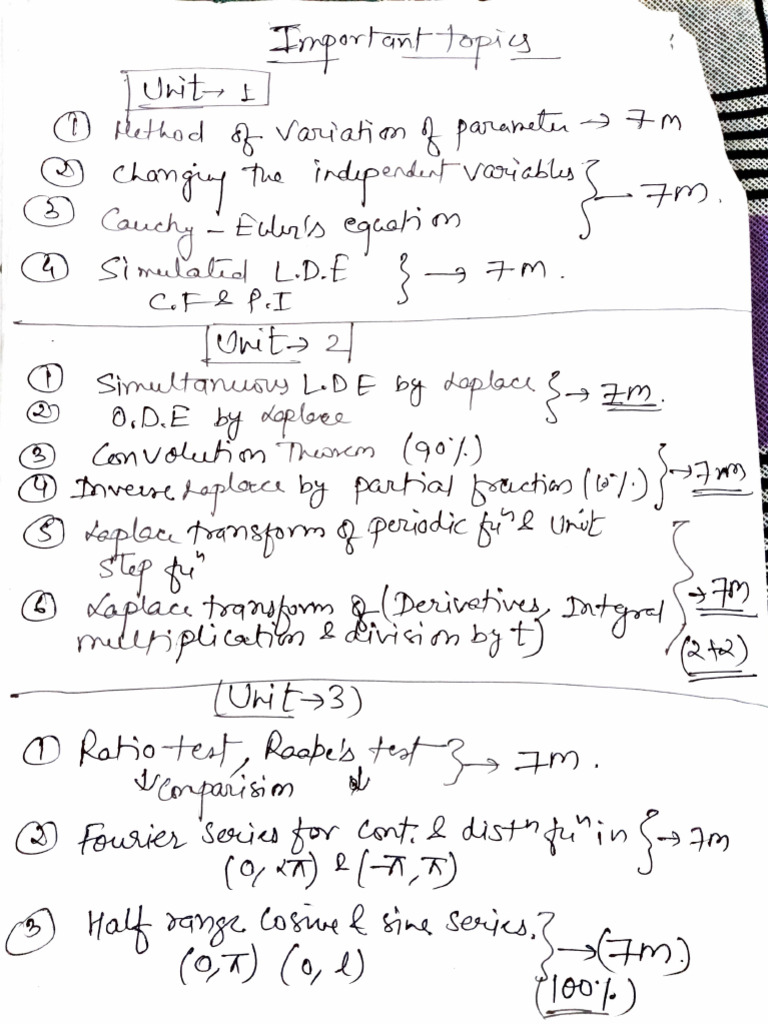 Important topics
Unit → 1
① Method of variation of parameter → 7m
② Changing the independent variables } — 7m.
③ Cauchy - Euler's equation
④ Simulated L.D.E } → 7m.
C.F & P.I
Unit → 2
① Simultaneous L.D E by Laplace } → 7m.
② O.D.E by Laplace
③ Convolution Theorem (90%)
④ Inverse Laplace by partial fraction (10%) } → 7m
⑤ Laplace transform of periodic fuⁿ & Unit
step fuⁿ
⑥ Laplace transform of (Derivatives, Integral } → 7m
multiplication & division by t) (2+2)
(Unit → 3)
① Ratio-test, Raabe's test } → 7m.
↓ Comparision ↓
② Fourier series for cont. & distⁿ fuⁿ in } → 7m
(0, 2π) & (-π, π)
③ Half range Cosine & sine series. } → (7m)
(0, π) (0, l)
(100%)